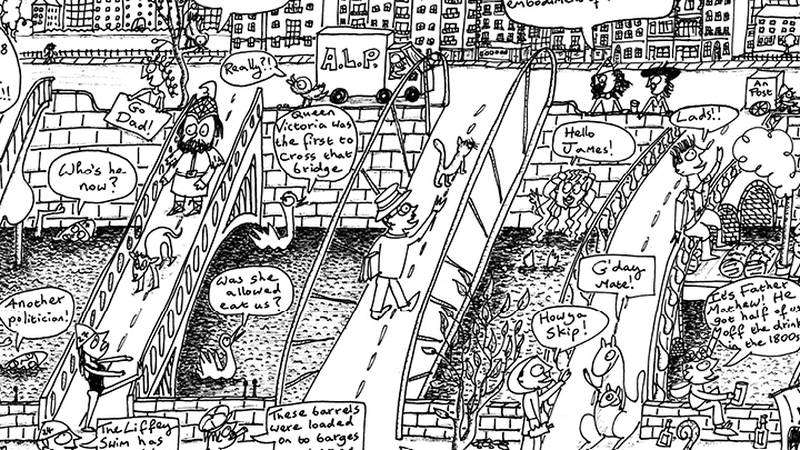 embodiment of
8
!!
Really?!
A.L.P.
An
Post
Go
Dad!
Queen
Victoria was
the first to
cross that
bridge
Hello
James!
Lads!!
Who's he
now?
Was she
allowed
eat us?
G'day
Mate!
Another
politician!
Howya
Skip!
It's Father
Mathew! He
got half of us
off the drink
in the 1800s
The Liffey
Swim has
These barrels
were loaded
on to barges